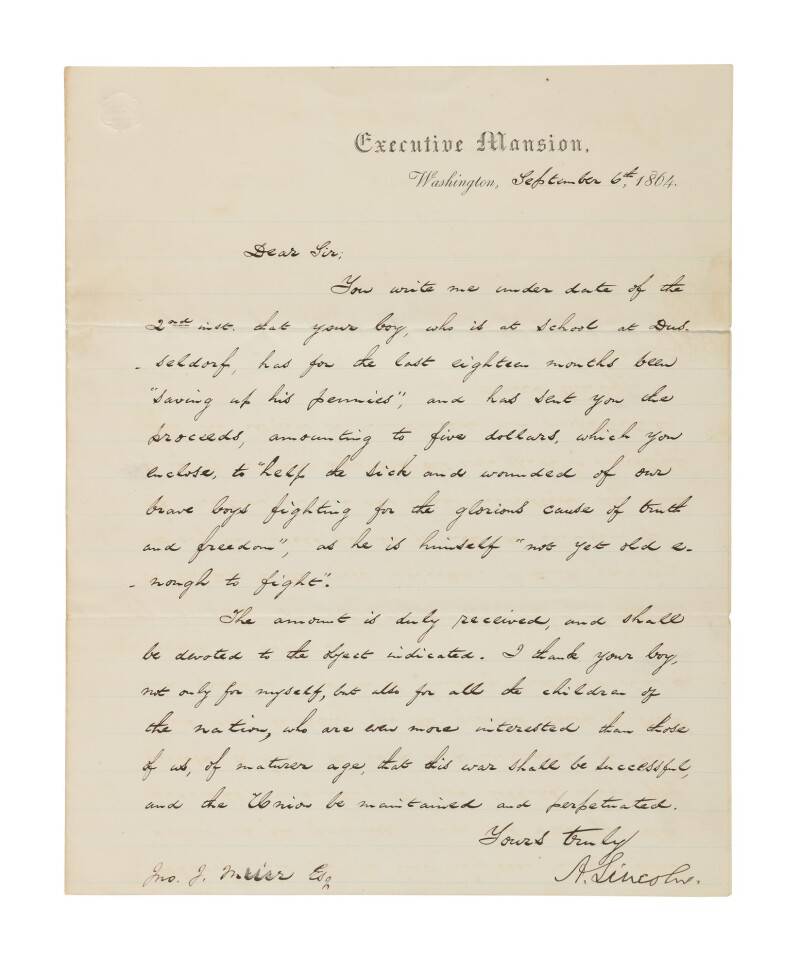 Executive Mansion,
Washington, September 6th, 1864.
Dear Sir;
You write me under date of the
2nd inst. that your boy, who is at school at Dus-
-seldorf, has for the last eighteen months been
"saving up his pennies", and has sent you the
proceeds, amounting to five dollars, which you
enclose, to "help the sick and wounded of our
brave boys fighting for the glorious cause of truth
and freedom", as he is himself "not yet old e-
-nough to fight".
The amount is duly received, and shall
be devoted to the object indicated. I thank your boy,
not only for myself, but also for all the children of
the nation, who are even more interested than those
of us, of maturer age, that this war shall be successful,
and the Union be maintained and perpetuated.
Yours truly
A. Lincoln.
Jno. J. Meier Esq